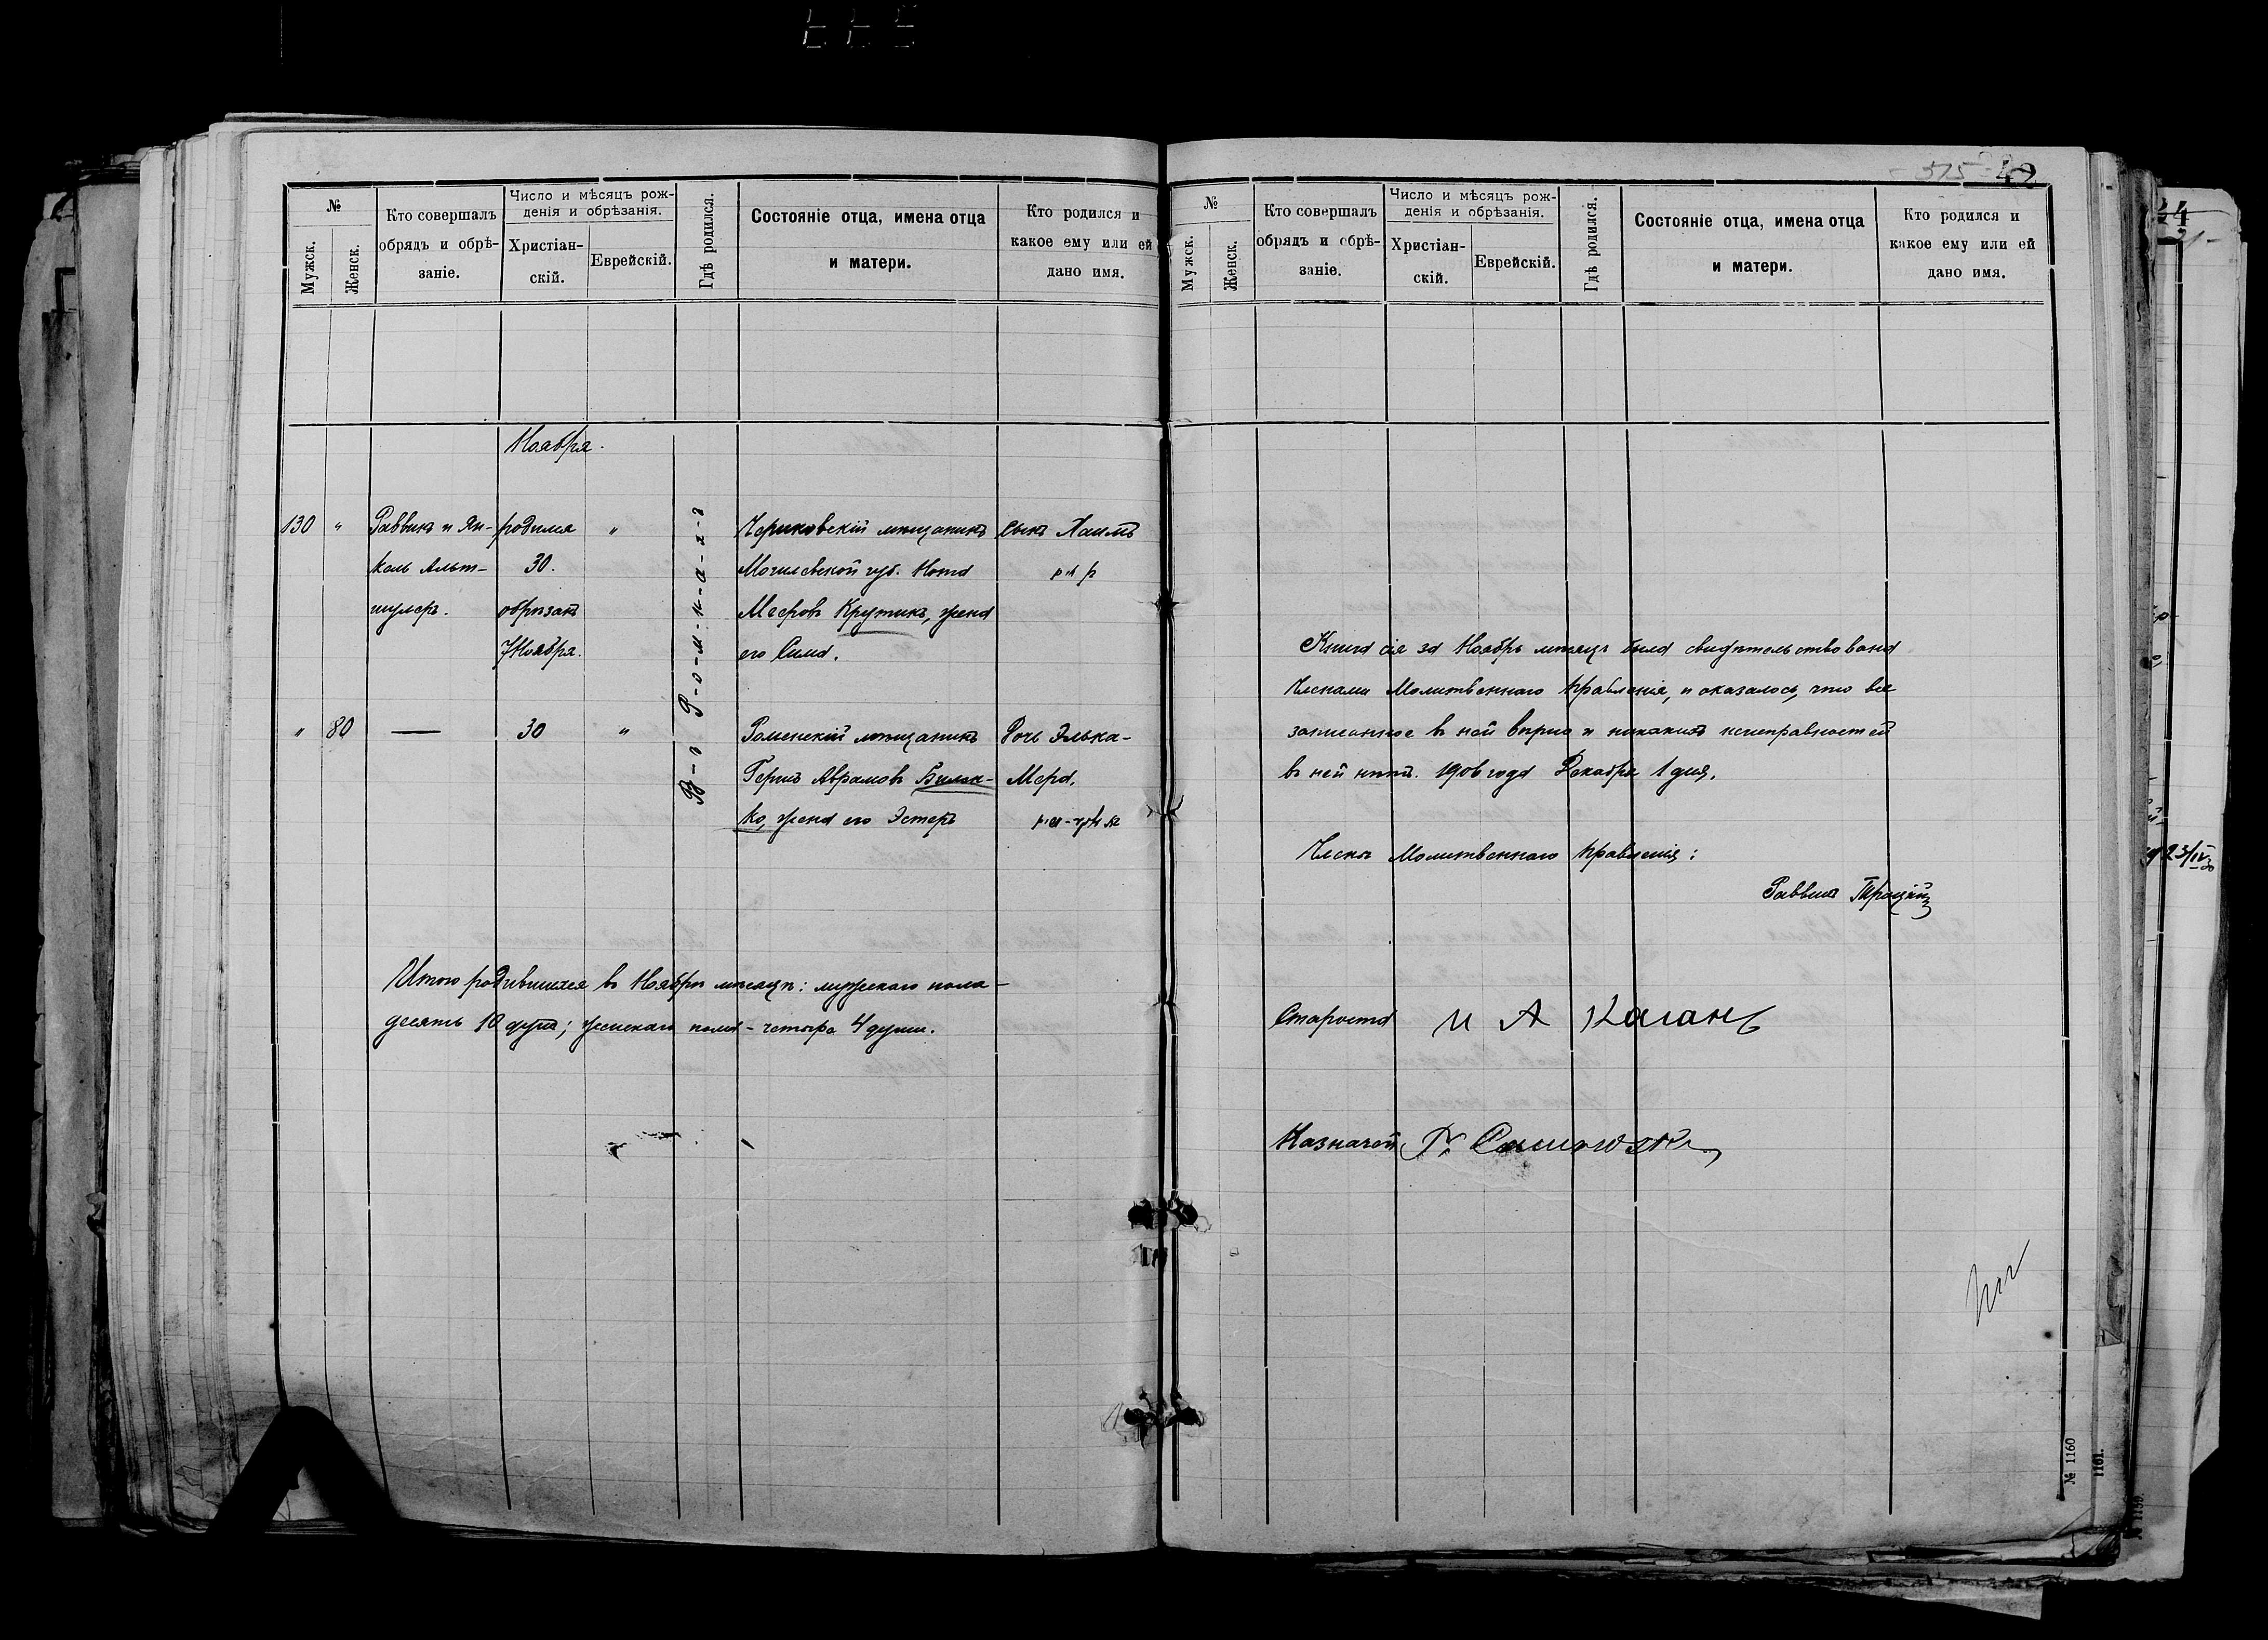 №
Мужск.
Женск.
Кто совершалъ
обрядъ и обрѣ-
заніе.
Число и мѣсяцъ рож-
денія и обрѣзанія.
Христіан-
скій.
Еврейскій.
Гдѣ родился.
Состояніе отца, имена отца
и матери.
Кто родился и
какое ему или ей
дано имя.
Ноября.
130 " Раввинъ и Ян-
кель Альт-
шулеръ.
родился
30.
обрѣзанъ
7 Ноября.
"
В-ъ Р-о-м-н-а-х-ъ
Чериковскій мѣщанинъ
Могилевской губ. Нота
Мееровъ Крупникъ, жена
его Сима.
Сынъ Хаимъ
" 80 — 30 "
Роменскій мѣщанинъ
Гершъ Аврамовъ Билен-
ко, жена его Эстеръ
Дочь Элька-
Мера.
Итого родившихся въ Ноябрѣ мѣсяцѣ: мужескаго пола -
десять 10 душъ; женскаго пола - четыре 4 души.
42
№
Мужск.
Женск.
Кто совершалъ
обрядъ и обрѣ-
заніе.
Число и мѣсяцъ рож-
денія и обрѣзанія.
Христіан-
скій.
Еврейскій.
Гдѣ родился.
Состояніе отца, имена отца
и матери.
Кто родился и
какое ему или ей
дано имя.
Книга сія за Ноябрь мѣсяцъ была свидѣтельствована
Членами Молитвеннаго Правленія, и оказалось, что все
записанное въ ней вѣрно и никакихъ неисправностей
въ ней нѣтъ. 1906 года Декабря 1 дня.
Члены Молитвеннаго Правленія:
Раввинъ Троцкій
Староста И А Каганъ
Казначей
№ 1160
1161.